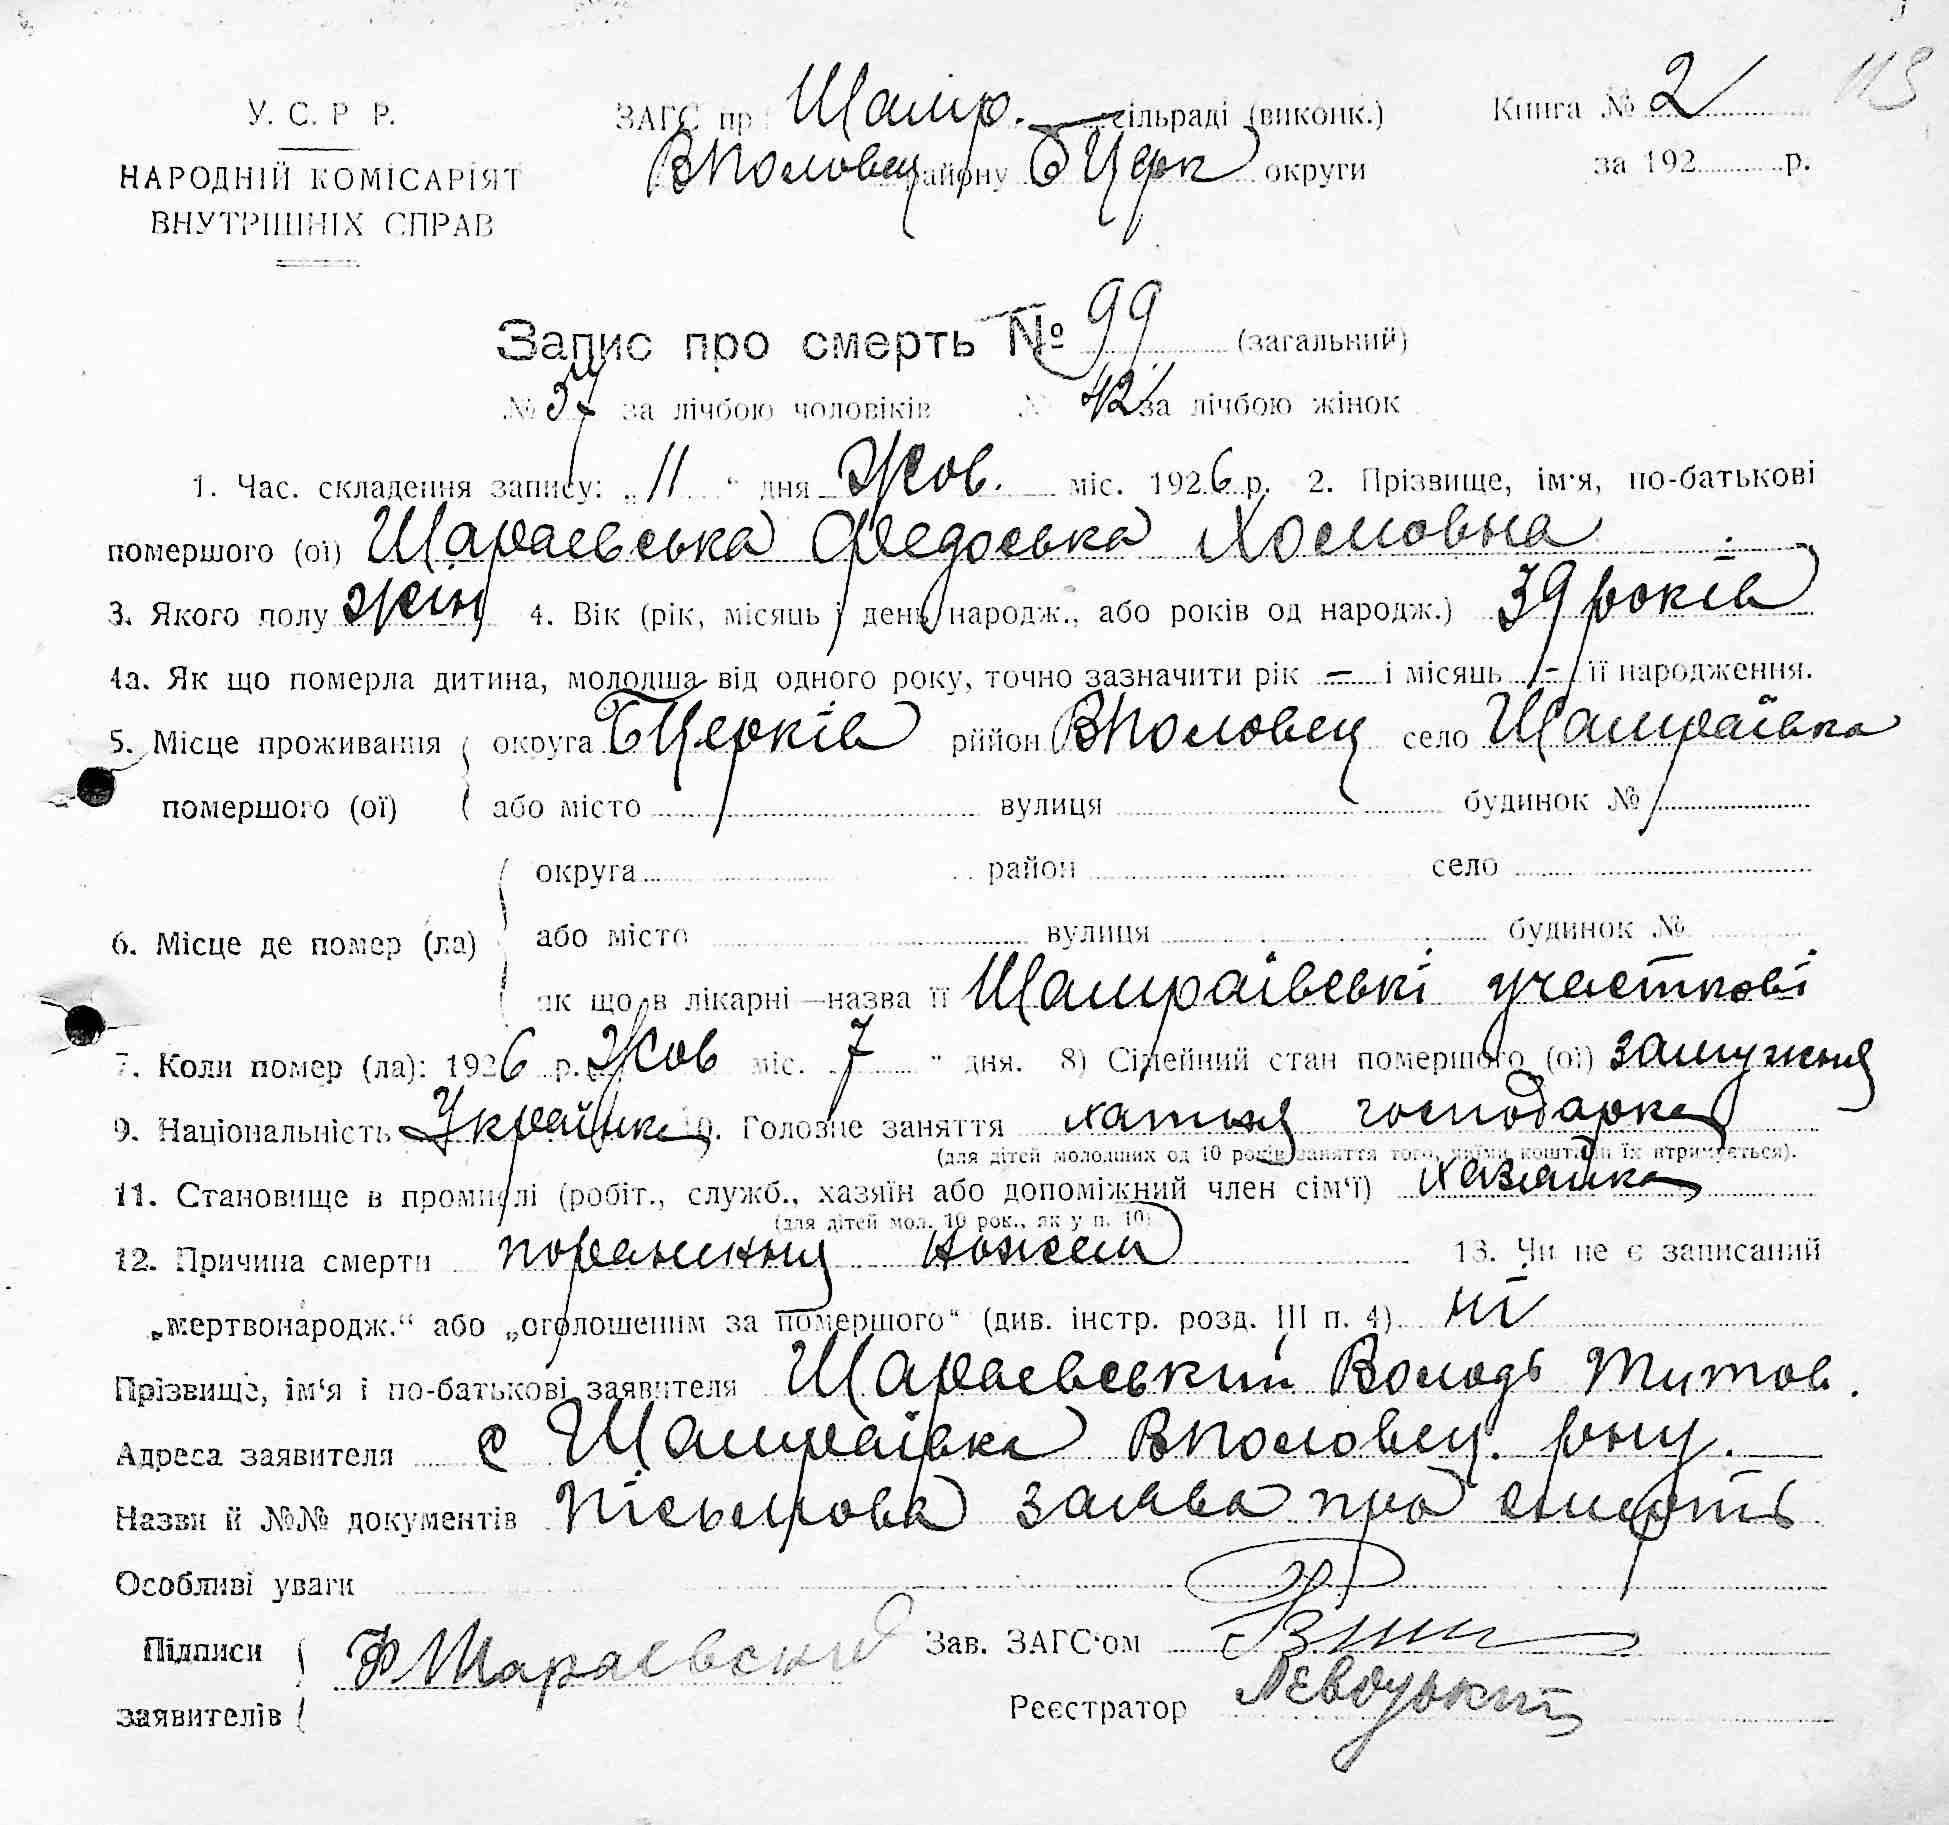 У. С. Р Р.
НАРОДНІЙ КОМІСАРІЯТ
ВНУТРІШНІХ СПРАВ
ЗАГС пр Шамр. сільраді (виконк.)
ВПоловец району БЦерк округи
Книга № 2
за 192 р.
Запис про смерть № 99 (загальний)
№ 57 за лічбою чоловіків № 42 за лічбою жінок
1. Час. складення запису: „11“ дня Жов. міс. 1926 р. 2. Прізвище, ім'я, по-батькові
помершого (ої) Шараевська Федоська Хомовна
3. Якого полу жін 4. Вік (рік, місяць і день народж., або років од народж.) 39 років
4а. Як що померла дитина, молодша від одного року, точно зазначити рік — і місяць - її народження.
5. Місце проживання округа БЦерків рійон ВПоловец село Шамраївка
помершого (ої) або місто вулиця будинок №
округа район село
6. Місце де помер (ла) або місто вулиця будинок №
як що в лікарні—назва її Шамраівські участкові
7. Коли помер (ла): 1926 р. Жов міс. 7 " дня. 8) Сімейний стан помершого (ої) замужня
9. Національність Українка 10. Головне заняття хатня господарка
(для дітей молодших од 10 років заняття того, якими коштами їх втримується).
11. Становище в промислі (робіт., служб., хазяїн або допоміжний член сім'ї) хазяйка
(для дітей мол. 10 рок., як у п. 10)
12. Причина смерти поранення ножем 13. Чи не є записаний
„мертвонародж.“ або „оголошеним за помершого“ (див. інстр. розд. III п. 4) ні
Прізвище, ім'я і по-батькові заявителя Шараевський Володь Титов.
Адреса заявителя с Шамраівка ВПоловец. рну.
Назви й №№ документів Письмова заява про смерть
Особливі уваги
Підписи Шараевский Зав. ЗАГС'ом
заявителів Реєстратор